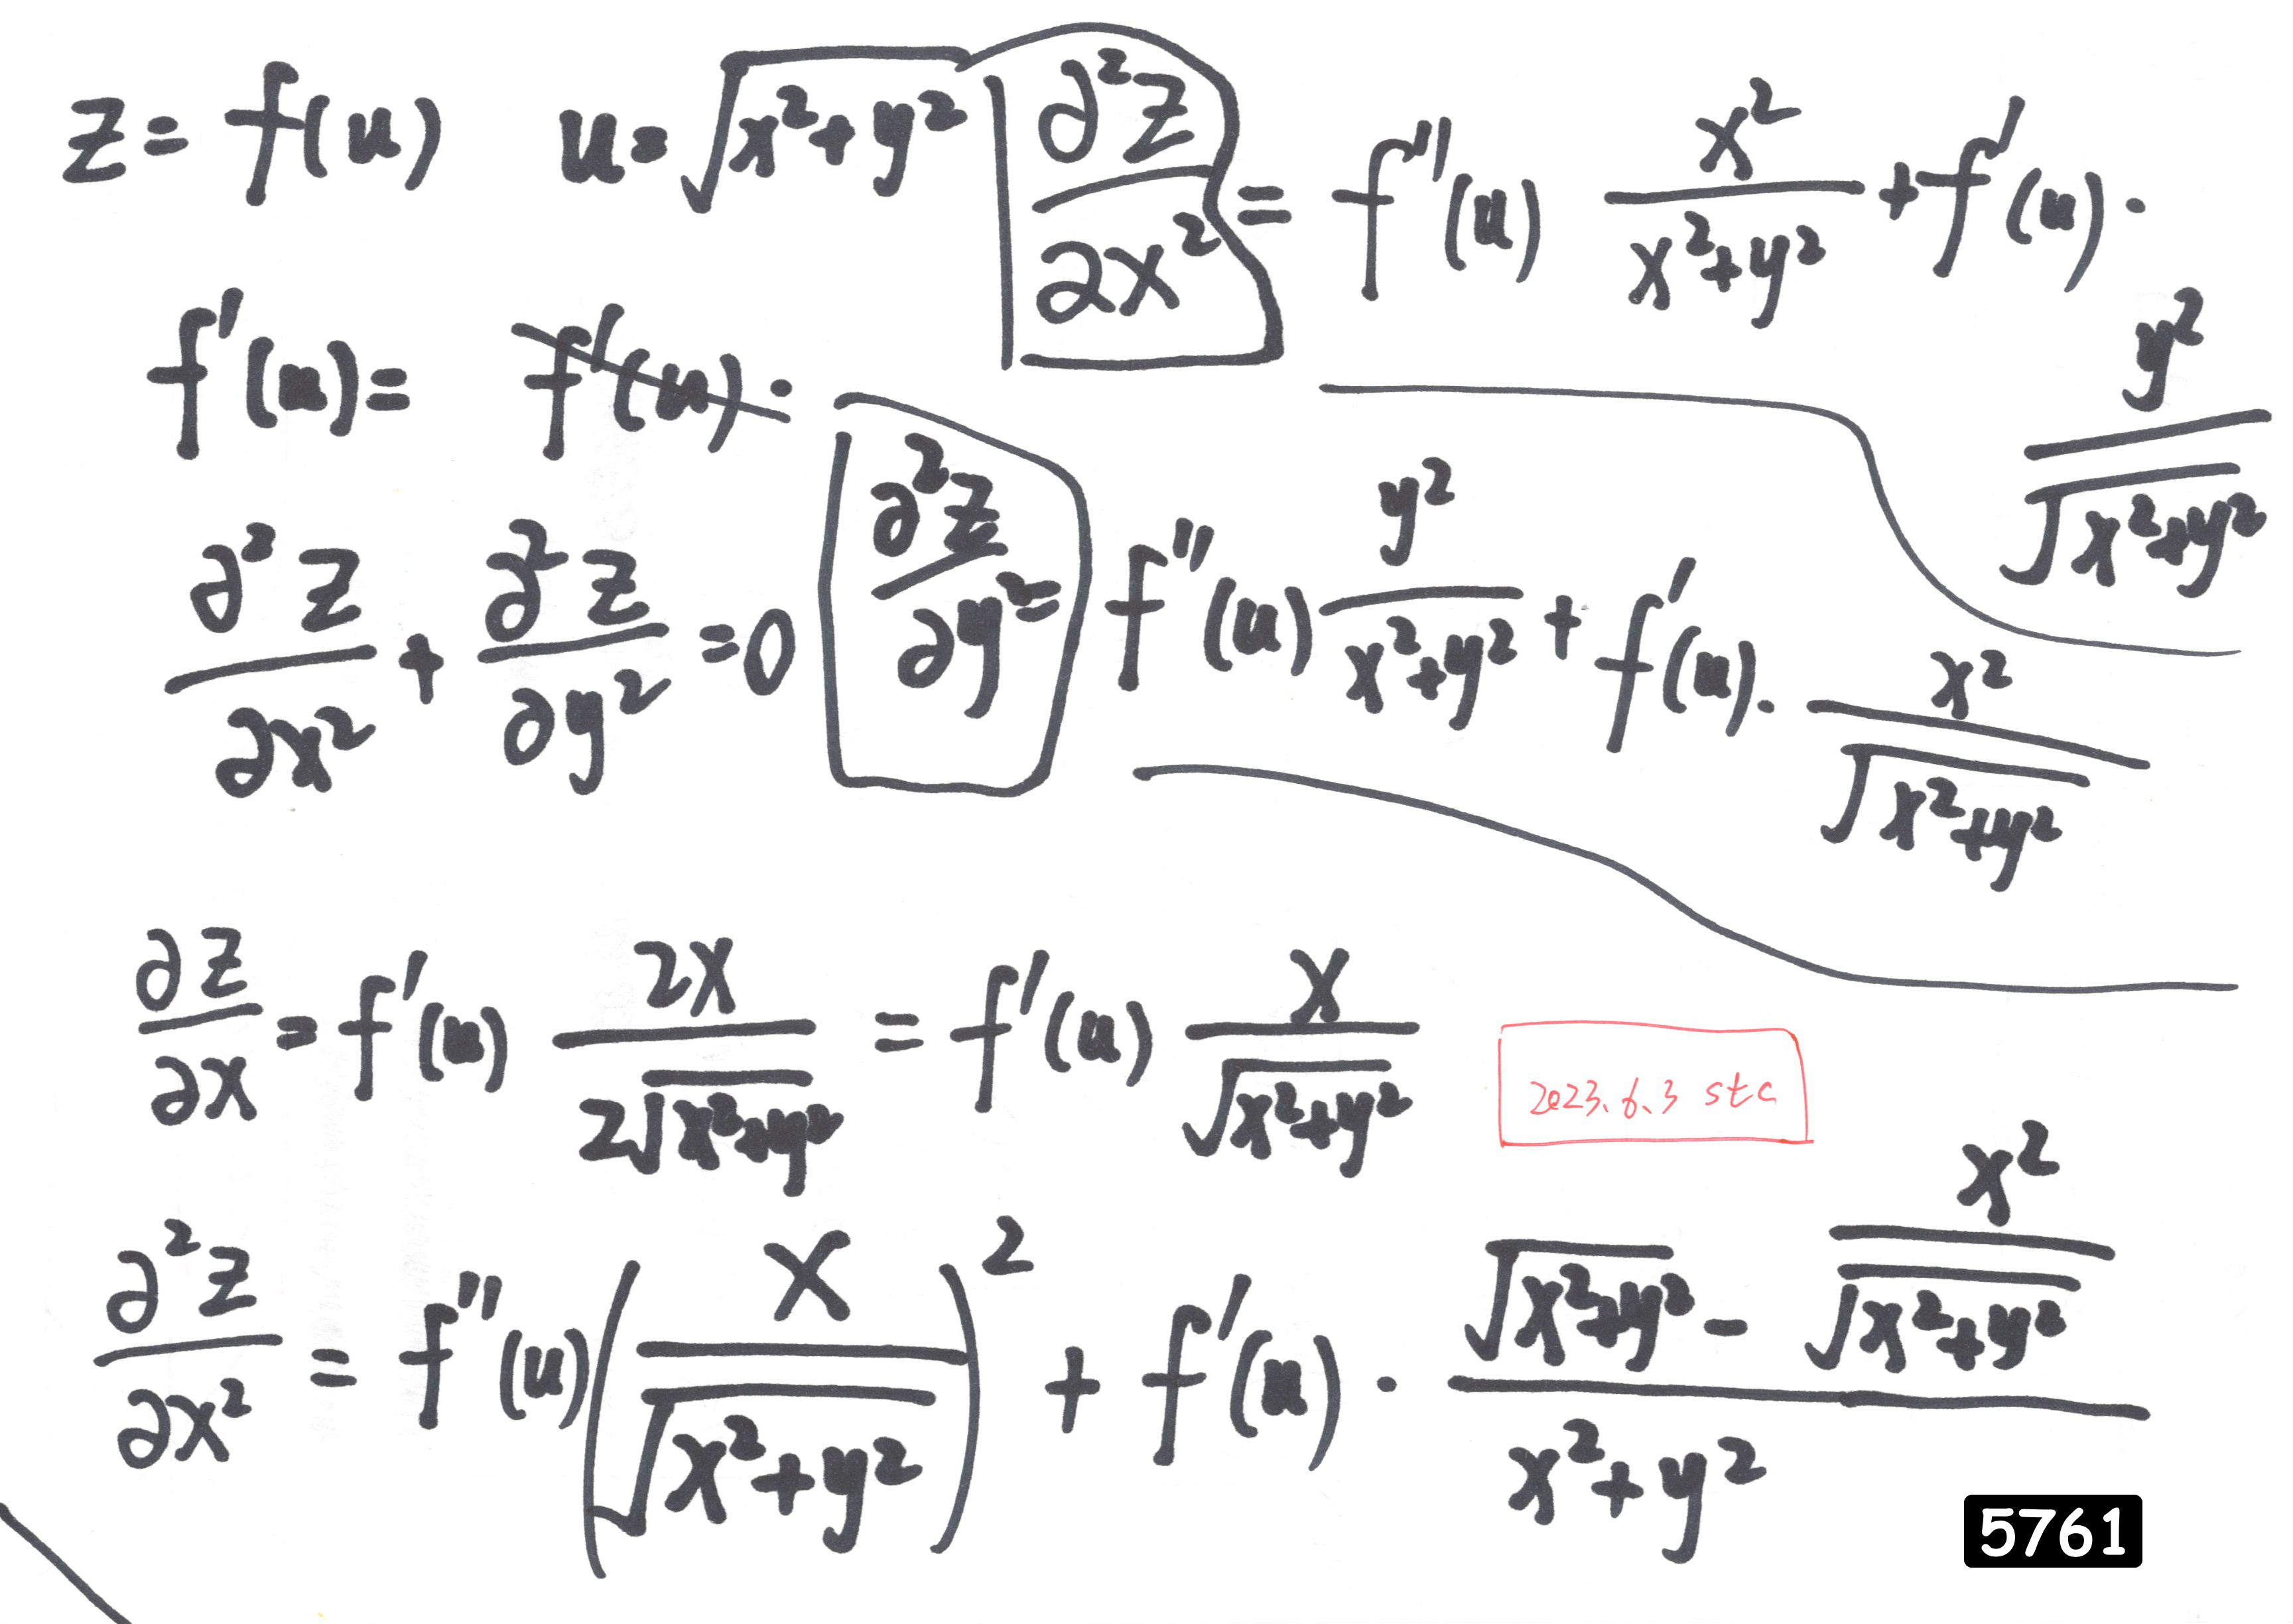 z = f(u) u = √(x²+y²)
∂²z/∂x² = f''(u) x²/(x²+y²) + f'(u) · y²/√(x²+y²)
f'(u) = f'(u) ·
∂²z/∂x² + ∂²z/∂y² = 0
∂²z/∂y² = f''(u) y²/(x²+y²) + f'(u) · x²/√(x²+y²)
∂z/∂x = f'(u) 2x/(2√(x²+y²)) = f'(u) x/√(x²+y²)
2023.6.3 stc
∂²z/∂x² = f''(u) (x/√(x²+y²))² + f'(u) · (√(x²+y²) - x²/√(x²+y²))/(x²+y²)
5761